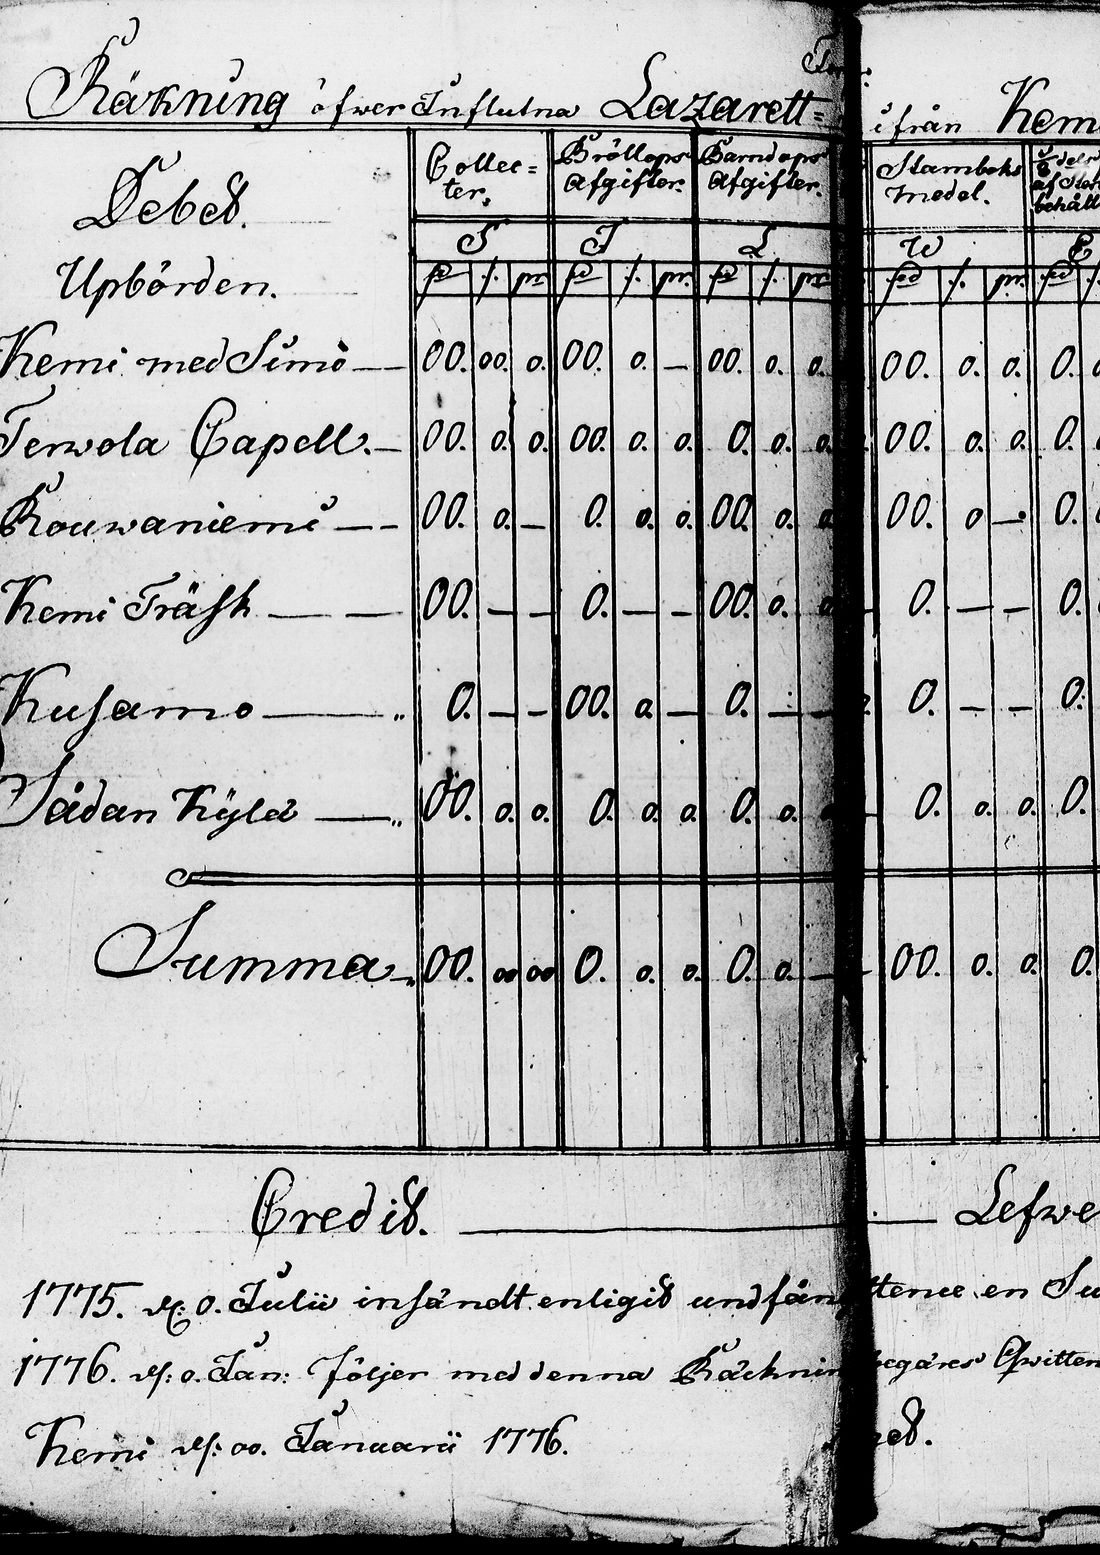 Räkning öfwer Influtna Lazarett= ifrån Kemi
Debet.
Collec= ter. Bröllops Afgifter. Barndops Afgifter. Stamboks medel.
S T L W E
Upbörden.
Kemi med Simo — 00. 00. 0. 00. 0. — 00. 0. 0. 00. 0. 0. 0.
Terwola Capell. — 00. 0. 0. 00. 0. 0. 0. 0. 0. 00. 0. 0. 0.
Rouwaniemi — — 00. 0. — 0. 0. 0. 00. 0. 0. 00. 0 — 0.
Kemi Träsk — — 00. — — 0. — — 00. 0. 0 0. — — 0.
Kusamo — 0. — — 00. 0. — 0. — — 0. — — 0.
Sådan Kylä — 00. 0. 0. 0. 0. 0. 0. 0. 0. 0. 0. 0.
Summa 00. 00 00 0. 0. 0. 0. 0. — 00. 0. 0. 0.
Credit. — Lefwe
1775. d: 0. Julii insändt enligit undfån ttence en Su
1776. d: 0. Jan: följer med denna Räcknin begäres Qwitten
Kemi d: 00. Januarii 1776.